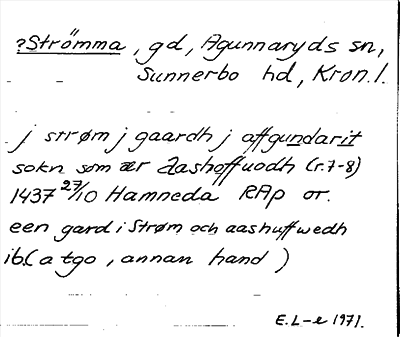 ?Strömma, gd, Agunnaryds sn,
Sunnerbo hd, Kron. l.
j strøm j gaardh j affgundarit
sokn som ær Aashoffuodh (r. 7-8)
1437 27/10 Hamneda RAp or.
een gard i Strøm och aashuffwedh
ib. (a tgo, annan hand)
E. L-e 1971.